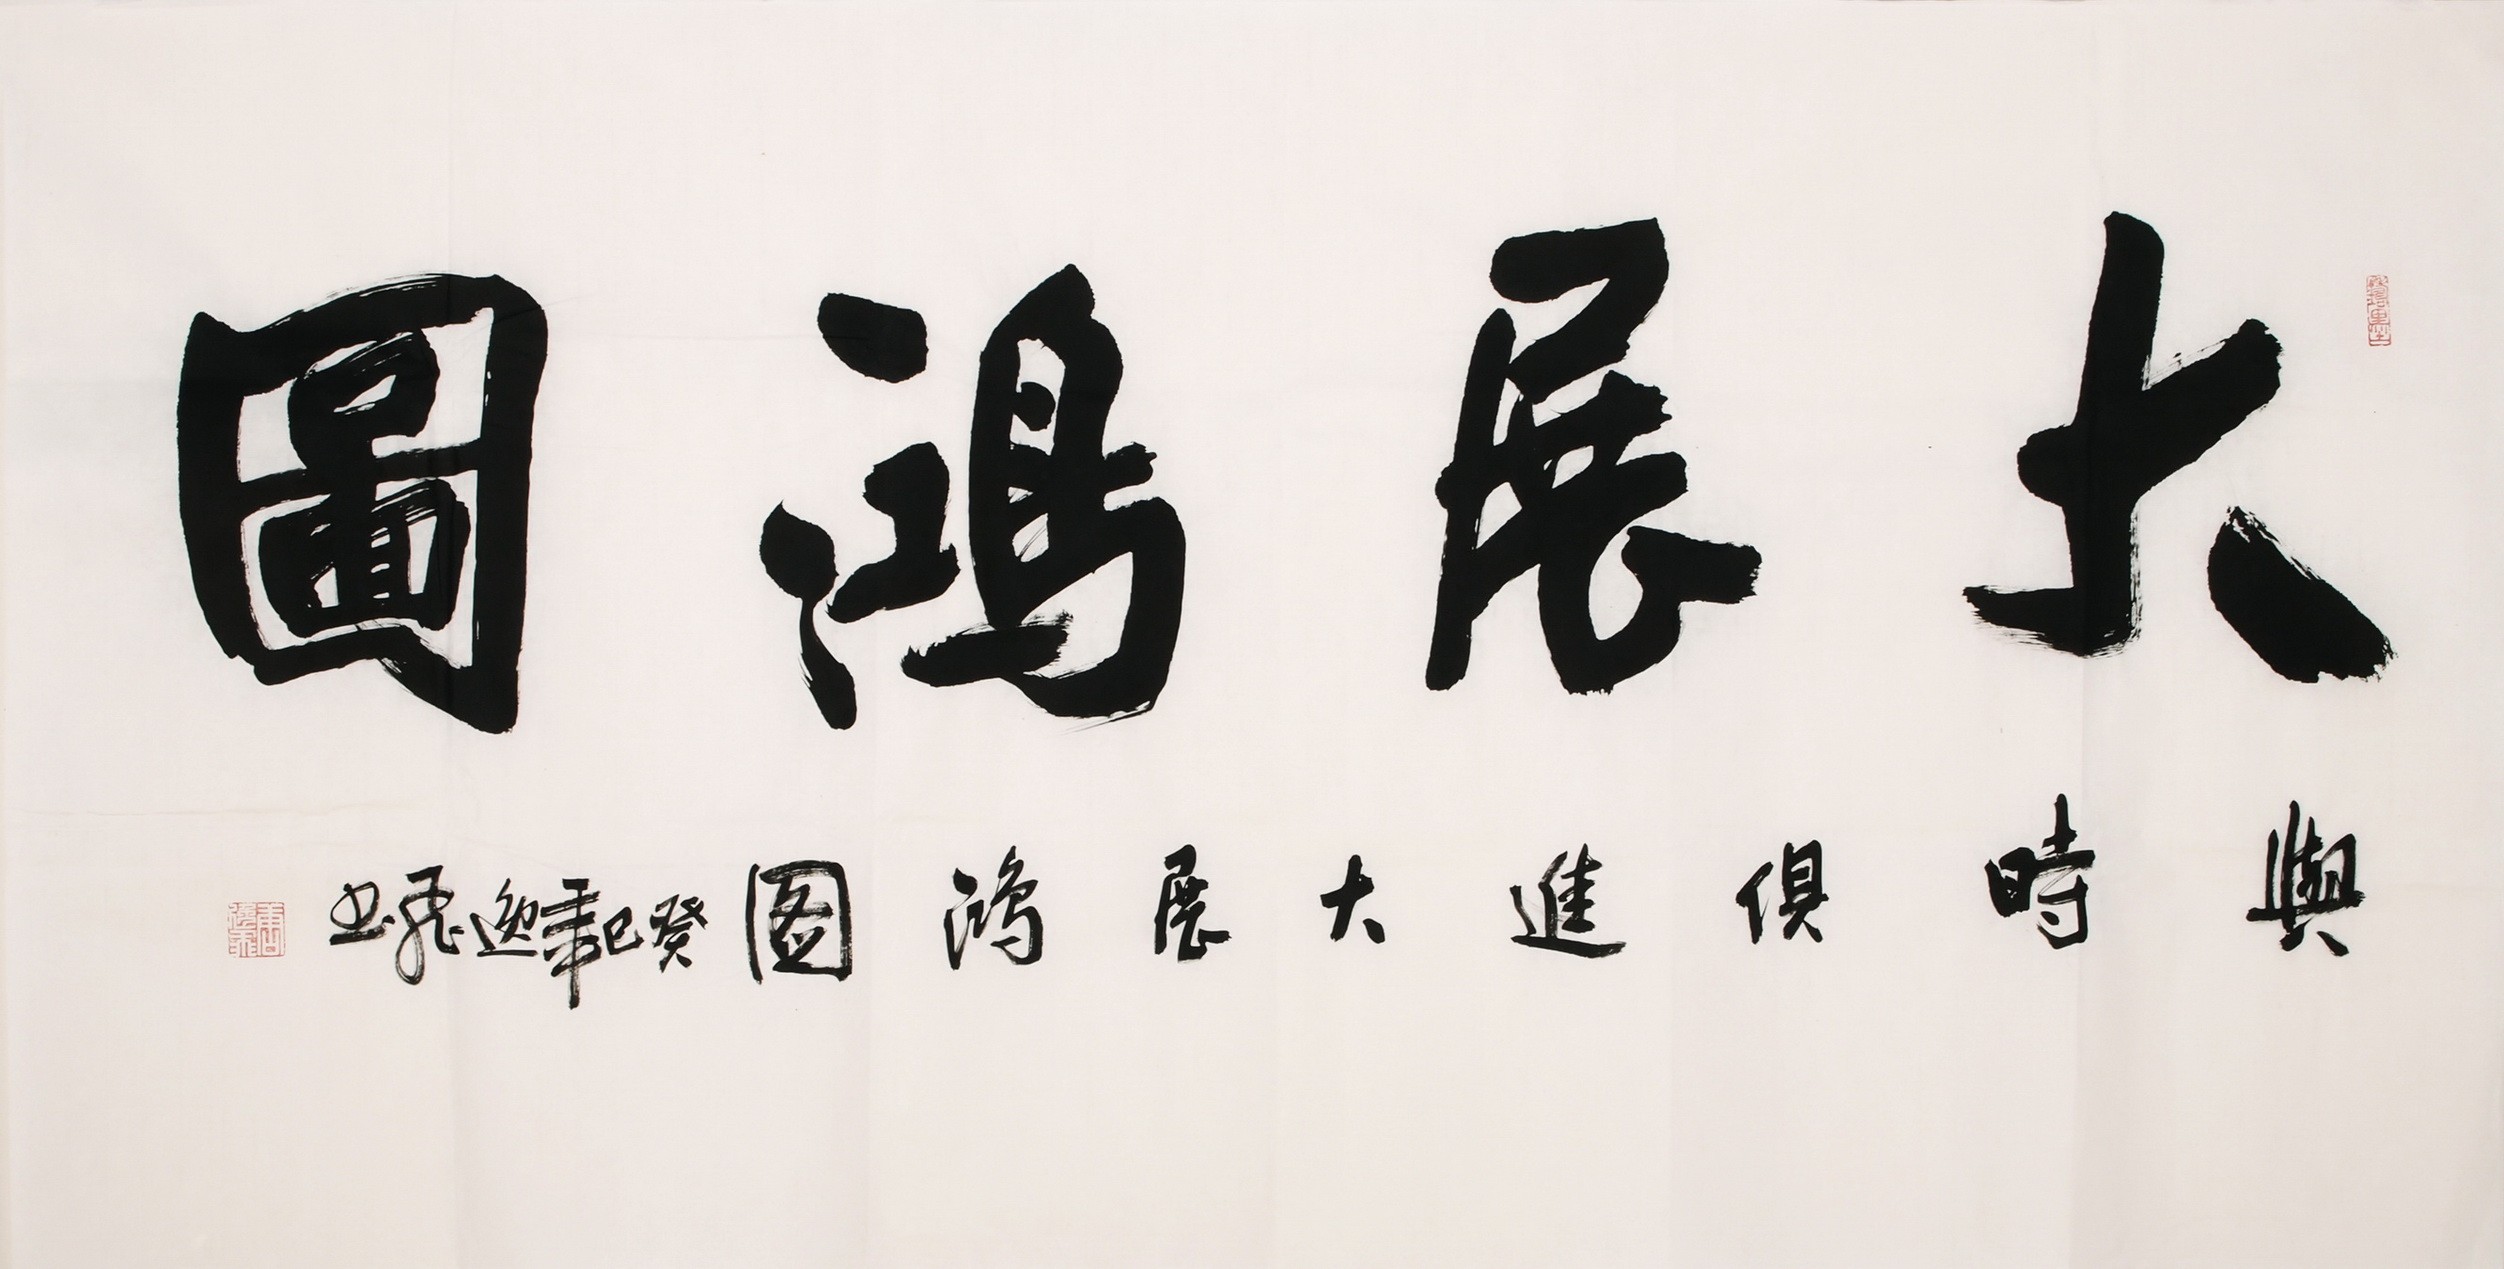 大展鴻圖
與時俱進大展鴻图癸巳年逸飛书